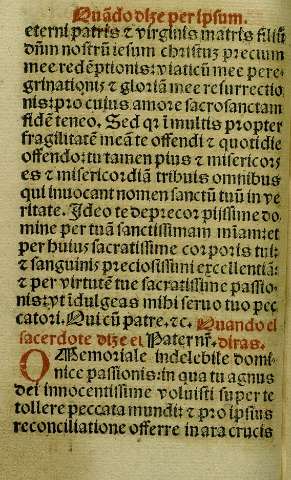 Quãdo dize per ipsum.
eterni patris ⁊ virginis matris filiũ
dñm nostrũ iesum christuz precium
mee redẽptionis: viaticũ mee pere
grinationis ⁊ gloriã mee resurrectio
nis: pro cujus amore sacrosanctam
fidẽ teneo. Sed qr ĩ multis propter
fragilitatẽ meã te offendi ⁊ quotidie
offendo: tu tamen pius ⁊ misericors
es ⁊ misericordiã tribuis omnibus
qui invocant nomen sanctũ tuũ in ve
ritate. Ideo te deprecor pijssime do
mine per tuã sanctissimam miam: et
per huius sacratissime corporis tui:
⁊ sanguinis preciosissimi excellentiã:
⁊ per virtutẽ tue sacratissime passio-
nis: vt idulgeas mihi seruo tuo pec
catori. Qui cũ patre. ⁊c. Quando el
sacerdote dize el Paternr̃. diras.
O Memoriale indelebile domi-
nice passionis: in qua tu agnus
dei innocentissime voluisti super te
tollere peccata mundi: ⁊ pro ipsius
reconciliatione offerre in ara crucis